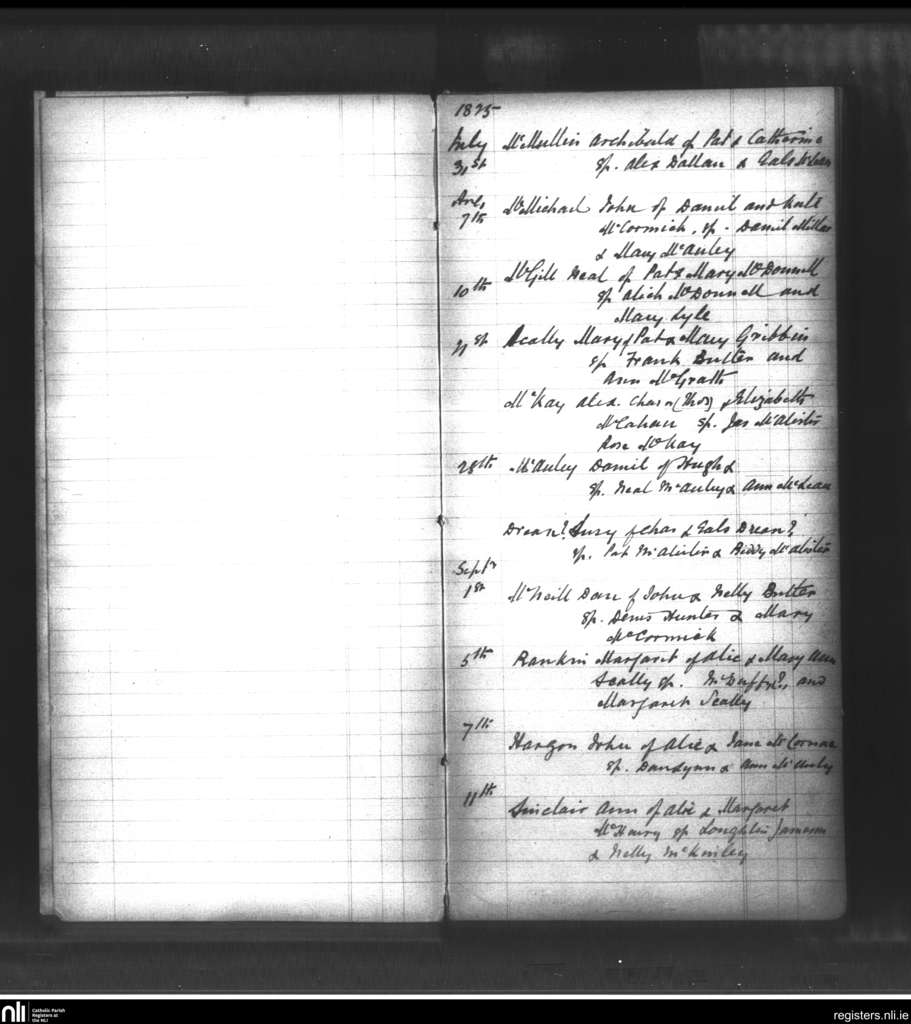 1825
July McMullin Archibald of Pat & Catherine
31st sp. Alex Dallan & Eals McLean
Aug
7th McMichael John of Daniel and Kate
McCormick, sp. Daniel Millar
& Mary McAuley
McGill Neal of Pat & Mary McDonnell
10th sp Alick McDonnell and
Mary Lyle
21st Scally Mary of Pat & Mary Gribbin
sp Frank Butler and
Ann McGrath
McKay Alex. Chas or (Thos) & Elizabeth
McCahan sp. Jas McAlister
Rose McKay
28th McAuley Daniel of Hugh &
sp. Neal McAuley & Ann McLean
Drean? Susy of Chas & Eals Drean?
sp. Pat McAlister & Biddy McAlister
Septr
1st McNeill Dan of John & Nelly Butler
sp. Denis Hunter & Mary
McCormick
5th Rankin Margaret of Alic & Mary Ann
Scally sp. and
Margaret Scally
7th
Hargon John of Alic & Jane McCormac
sp. Dan Lynn & Ann McAuley
11th
Sinclair Ann of Alic & Margaret
McHenry sp Loughlin Jameson
& Nelly McKinley
nli
Catholic Parish
Registers at
the NLI
registers.nli.ie